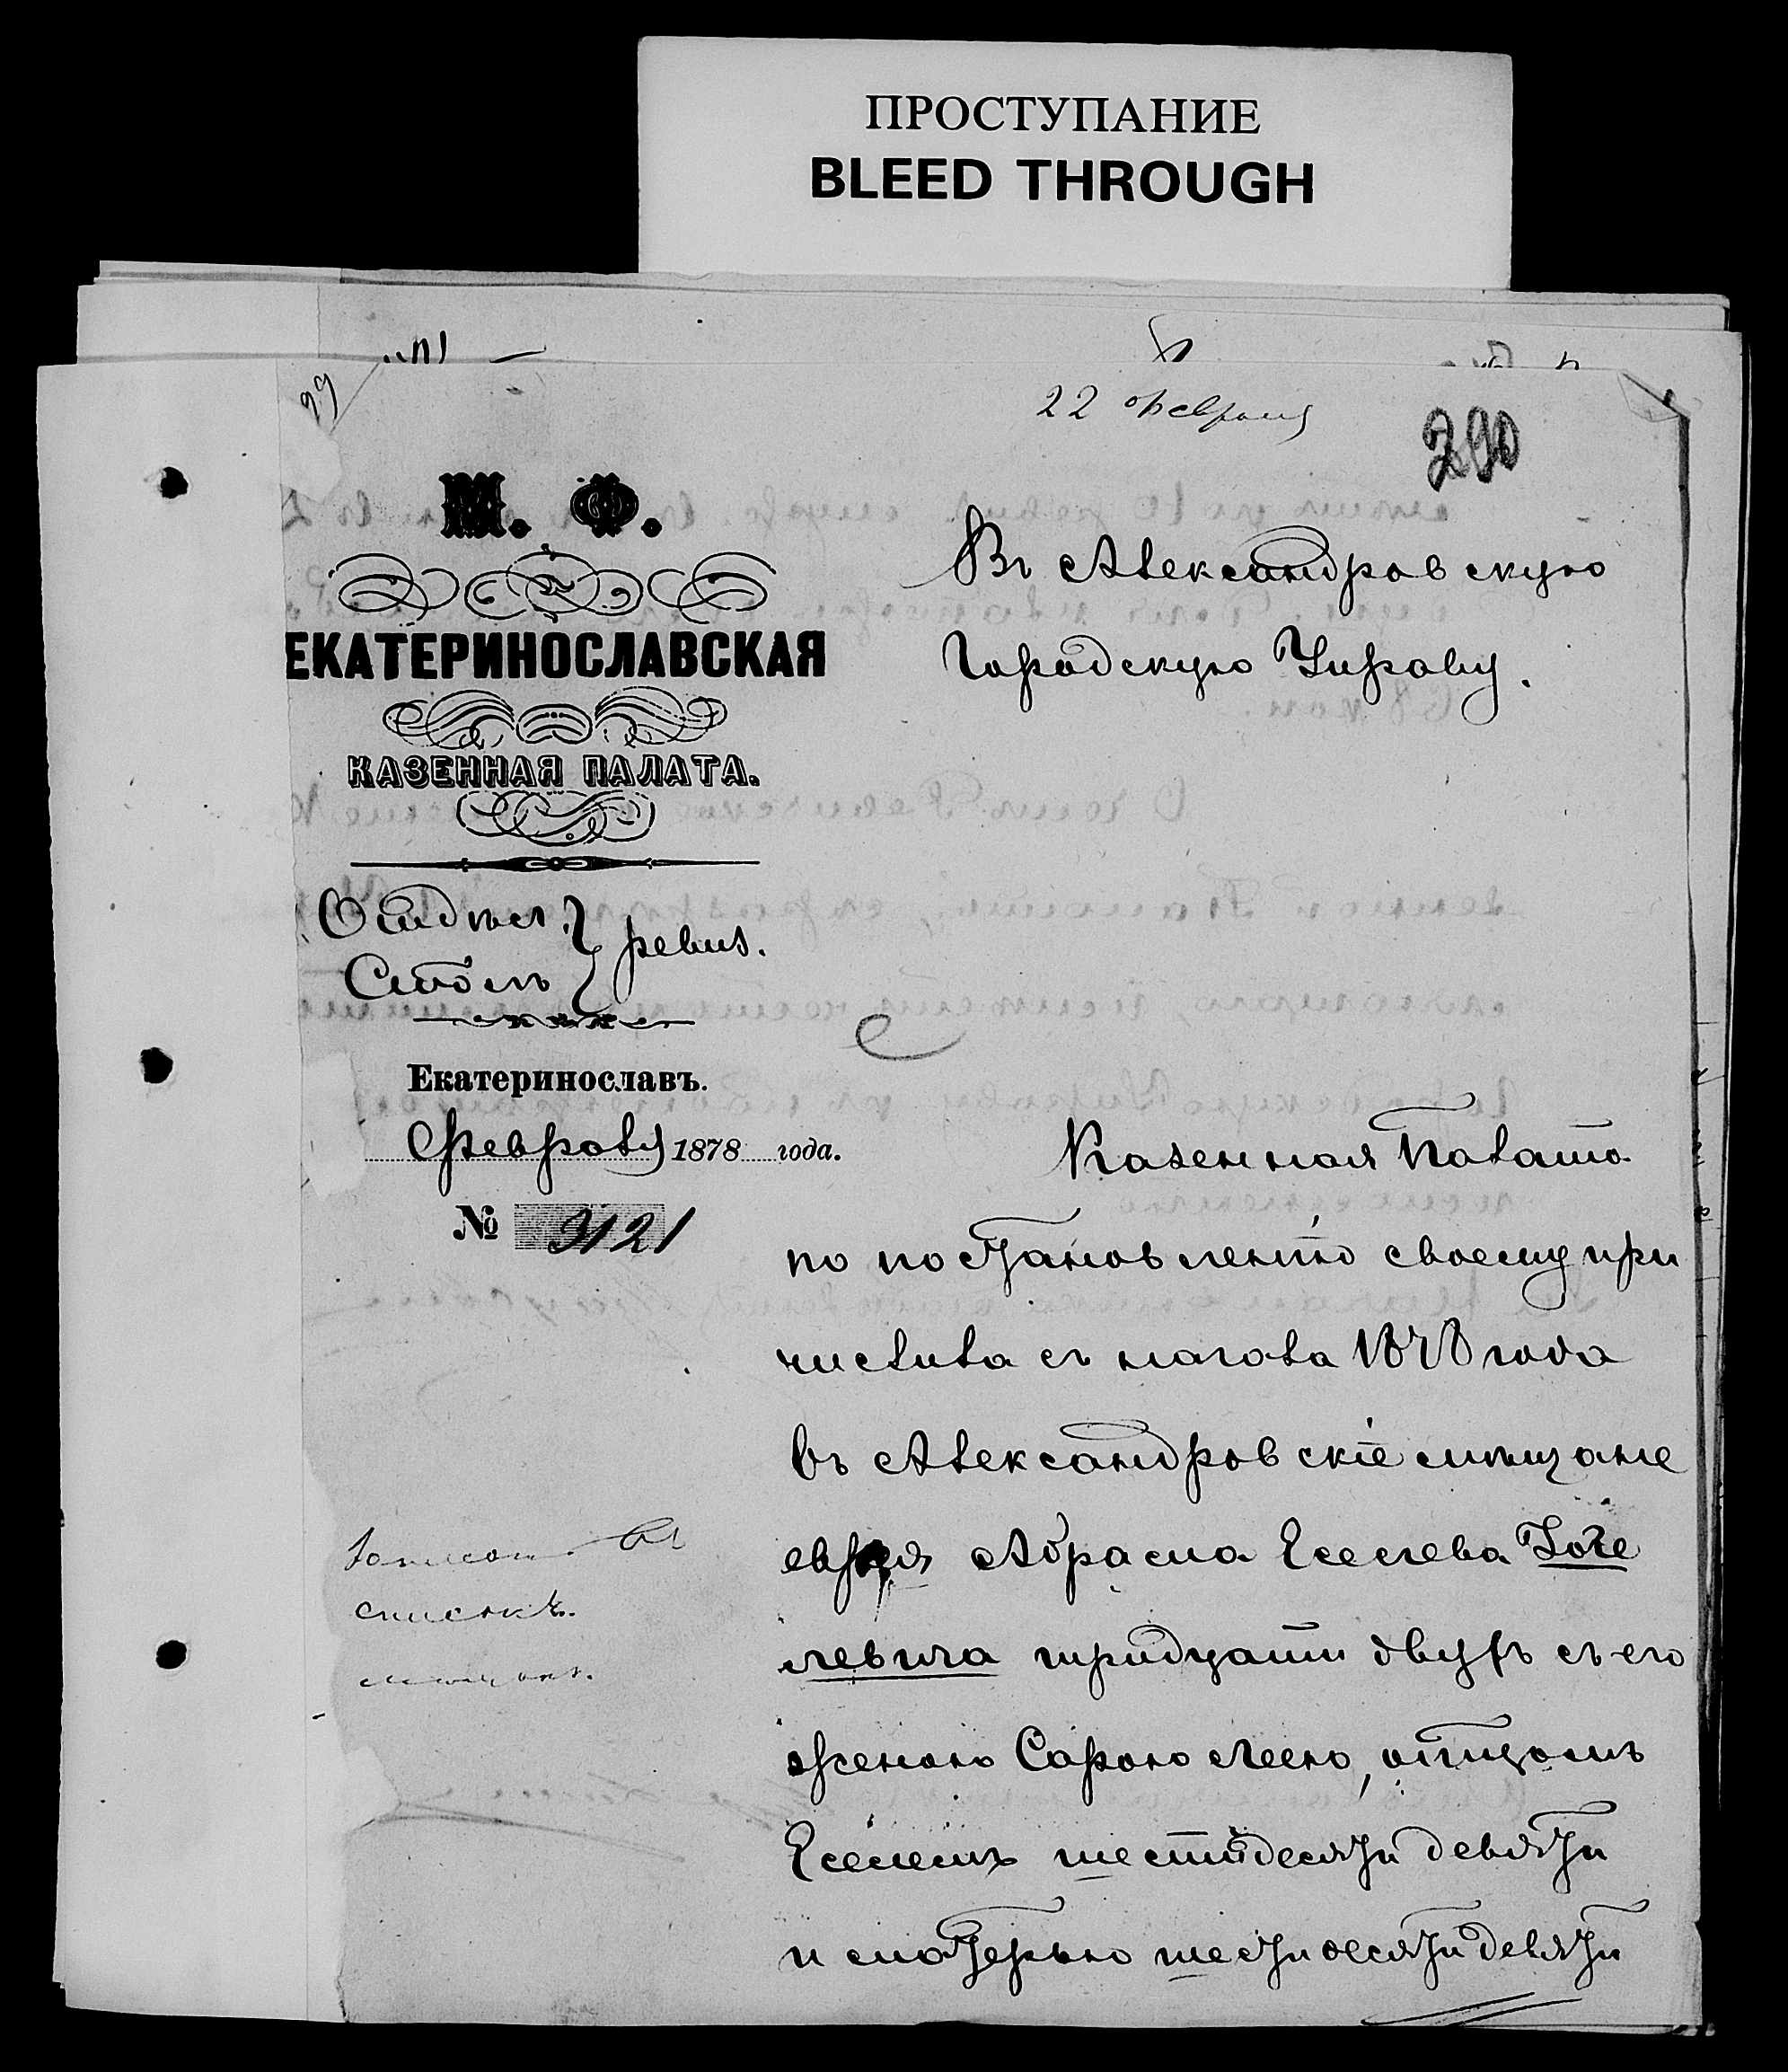 ПРОСТУПАНИЕ
BLEED THROUGH
22 февраля
290
М. Ф.
ЕКАТЕРИНОСЛАВСКАЯ
КАЗЕННАЯ ПАЛАТА.
Отдѣл.
Столъ
ревиз.
Екатеринославъ.
Февраля 1878 года.
№ 3121
Въ Александровскую
Городскую Управу.
Казенная Палата
по постановленію своему при
числила съ начала 1878 года
въ Александровскіе мѣщане
еврея Абрама Еселева Іоне
левича тридцати двухъ съ его
женою Сарою Леею, отцомъ
Еселемъ шестидесяти девяти
и матерью шестидесяти девяти
списокъ.